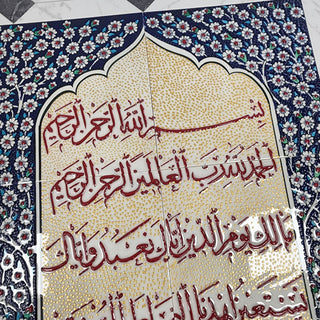 بسم الله الرحمن الرحيم
الحمد لله رب العالمين الرحمن الرحيم
مالك يوم الدين إياك نعبد وإياك
نستعين اهدنا الصراط